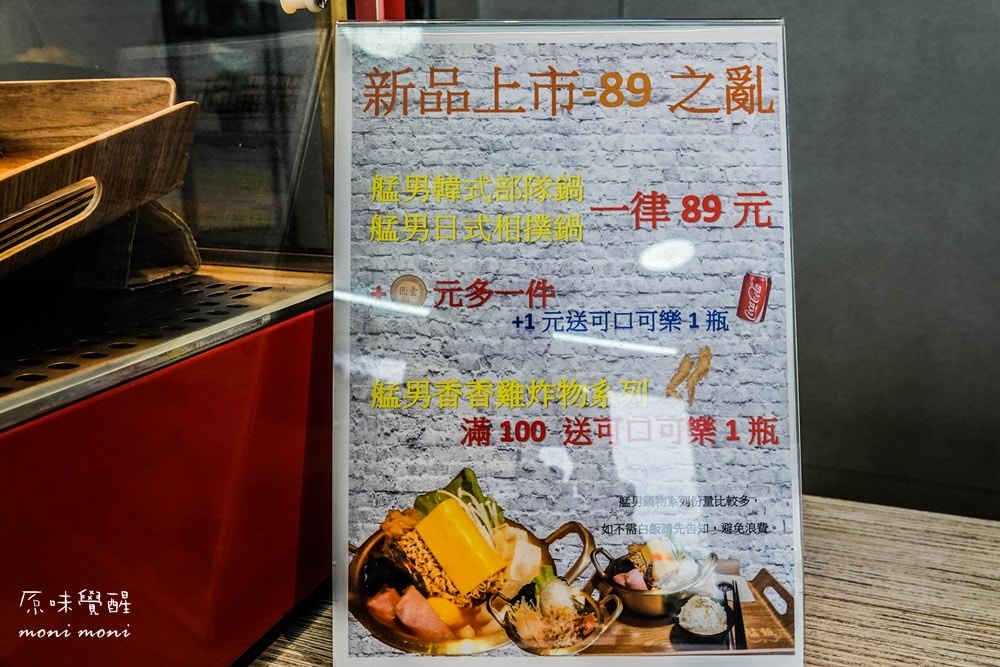 新品上市-89 之亂
艋男韓式部隊鍋
艋男日式相撲鍋
一律 89 元
+ 元多一件
+1 元送可口可樂 1 瓶
Coca-Cola
艋男香香雞炸物系列
滿 100 送可口可樂 1 瓶
艋男鍋物系列份量比較多，
如不需白飯請先告知，避免浪費。
原味覺醒
moni moni